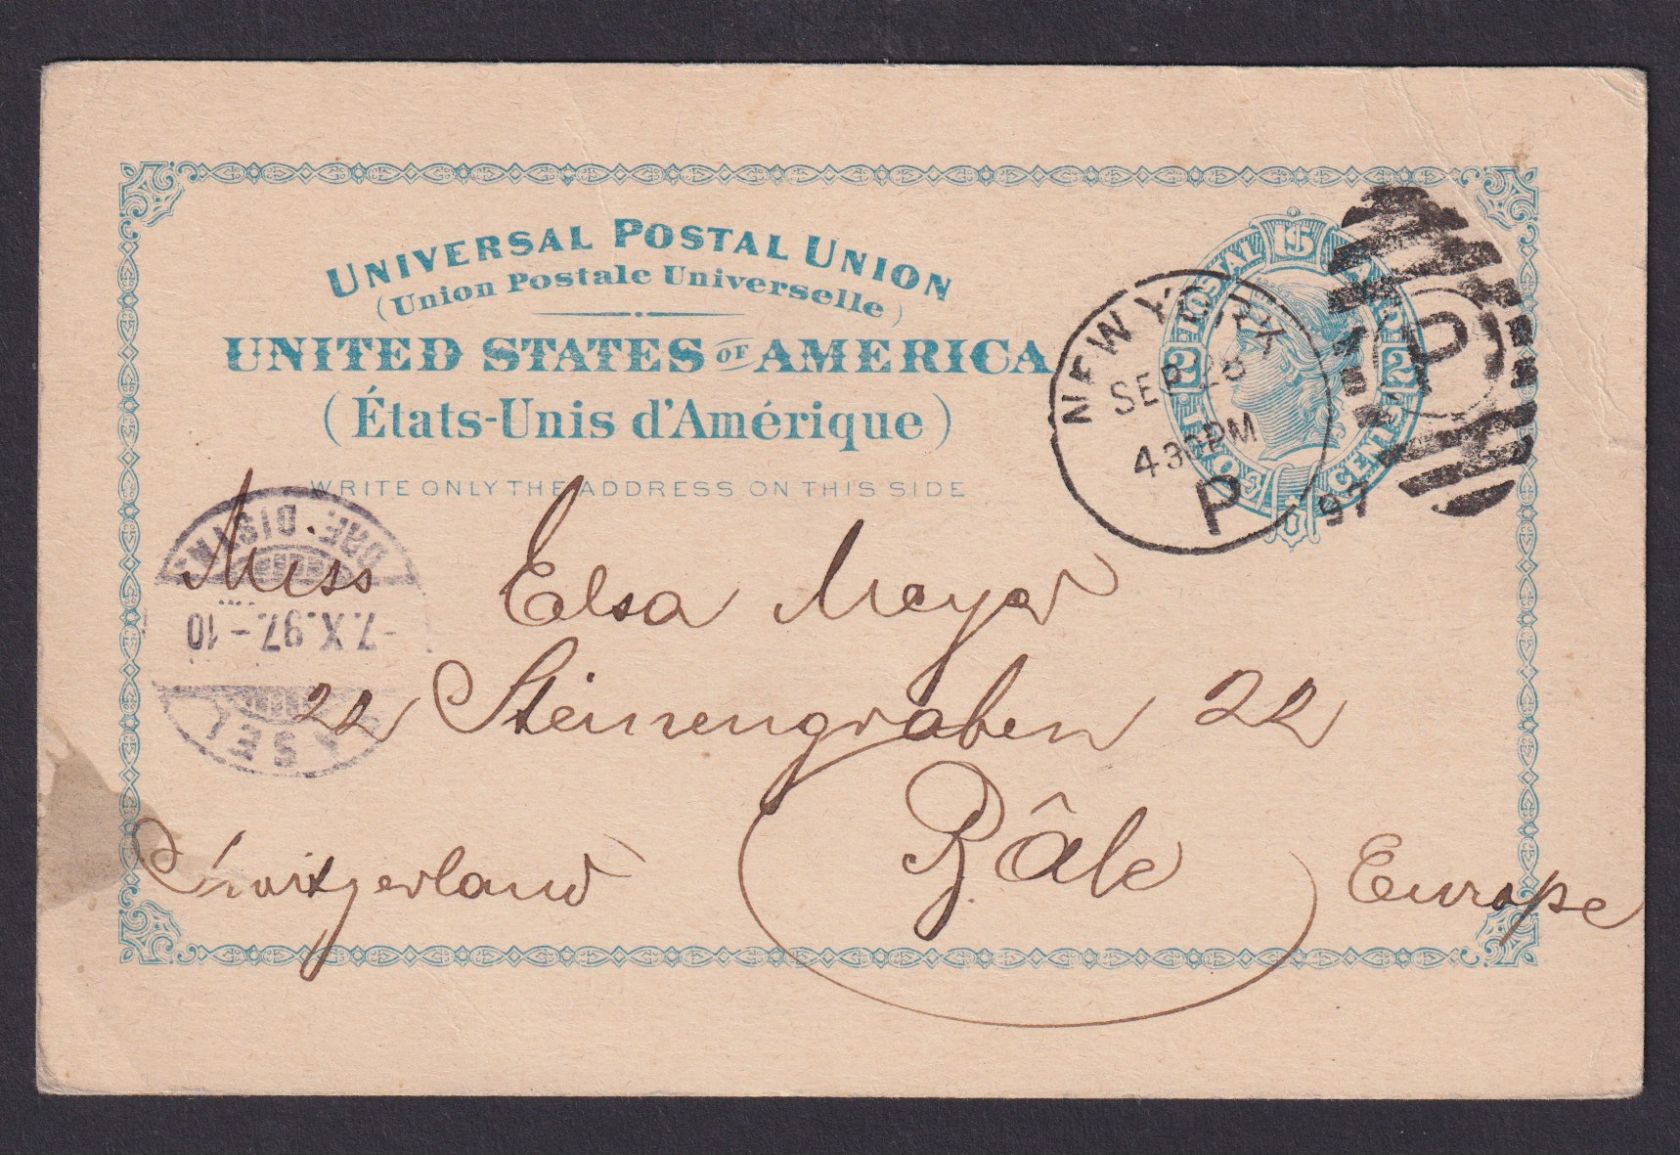 UNIVERSAL POSTAL UNION
(Union Postale Universelle)
UNITED STATES OF AMERICA
(États-Unis d'Amérique)
WRITE ONLY THE ADDRESS ON THIS SIDE
POSTAL CARD
U S
2 TWO CENTS 2
NEW YORK
SEP 28
430PM
P 97
P
-7.X.97.-10
Miss Elsa Meyer
22 Steinengraben 22
Bâle
Switzerland Europe